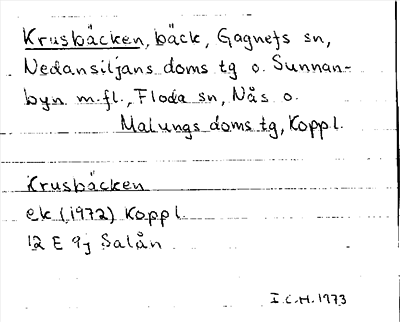 Krusbäcken, bäck, Gagnefs sn,
Nedansiljans doms tg o. Sunnan-
byn m.fl., Floda sn, Nås o.
Malungs doms tg, Koppl.
Krusbäcken
ek (1972) Koppl
12 E 9j Salån
I.C.H. 1973